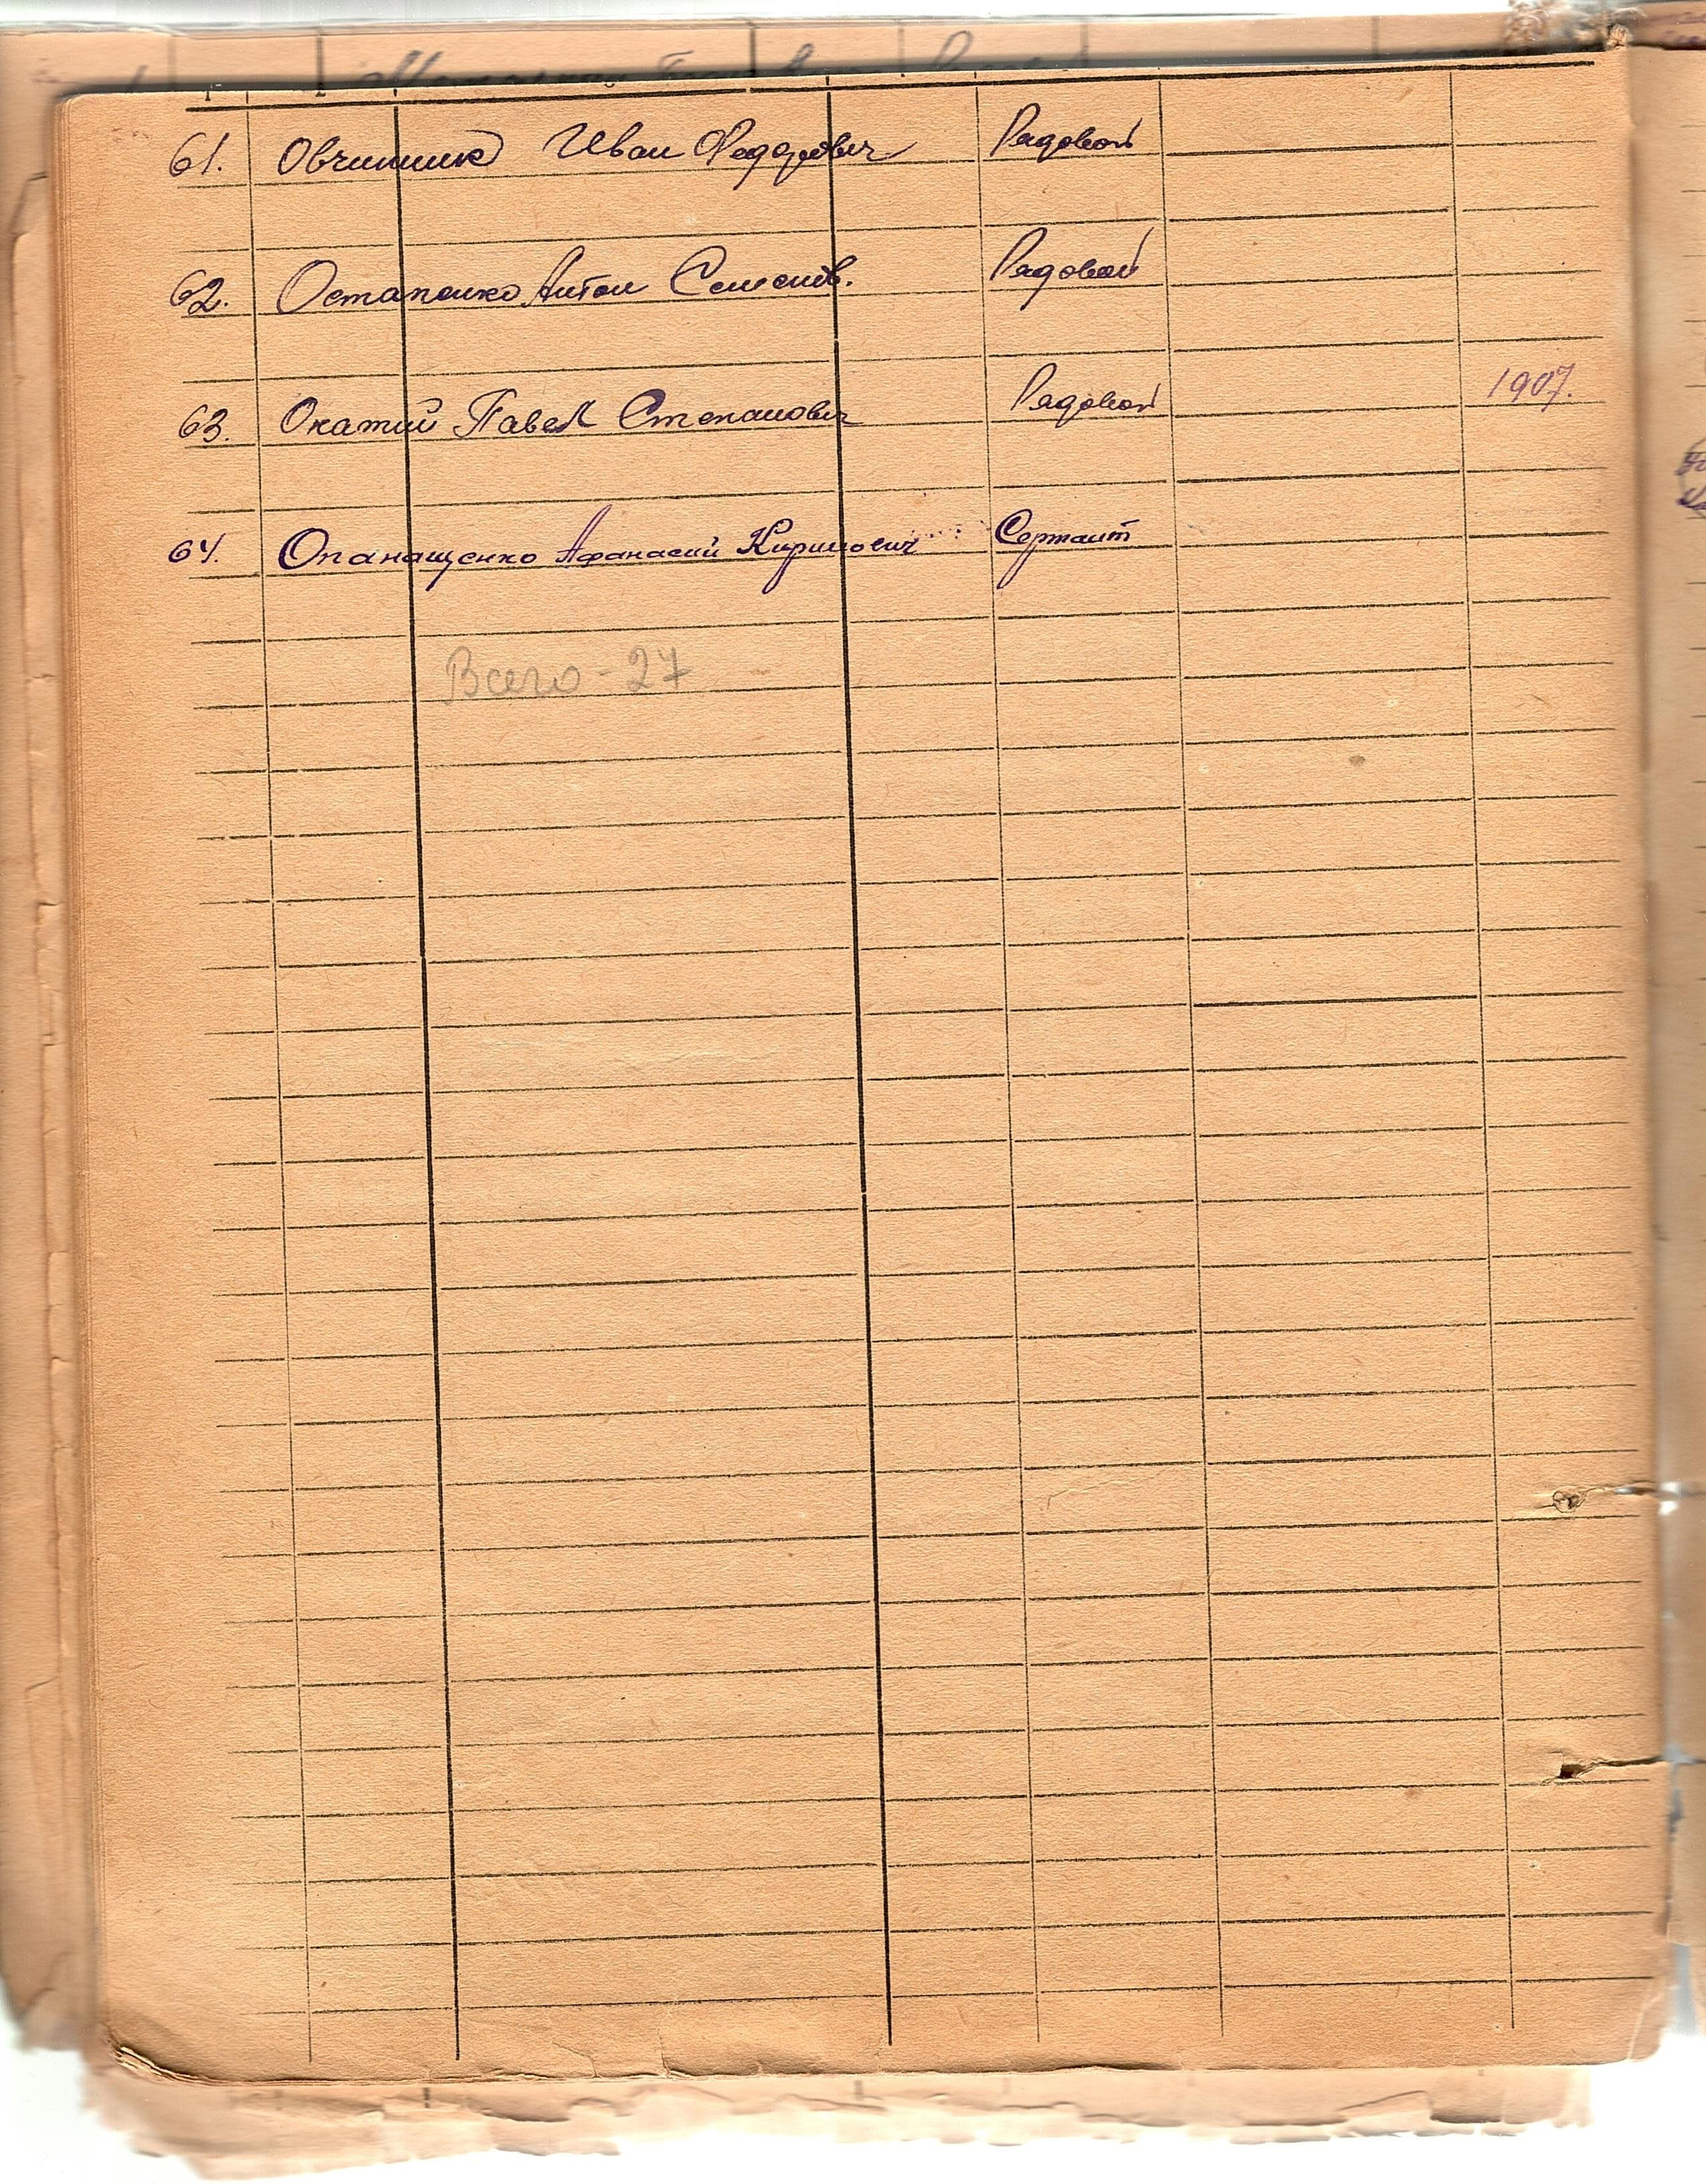 61. Овчинник Иван Федорович Рядовой
62. Остапенко Антон Семенов. Рядовой
63. Окатий Павел Степанович Рядовой 1907.
64. Опанащенко Афанасий Кирилович Сержант
Всего - 27